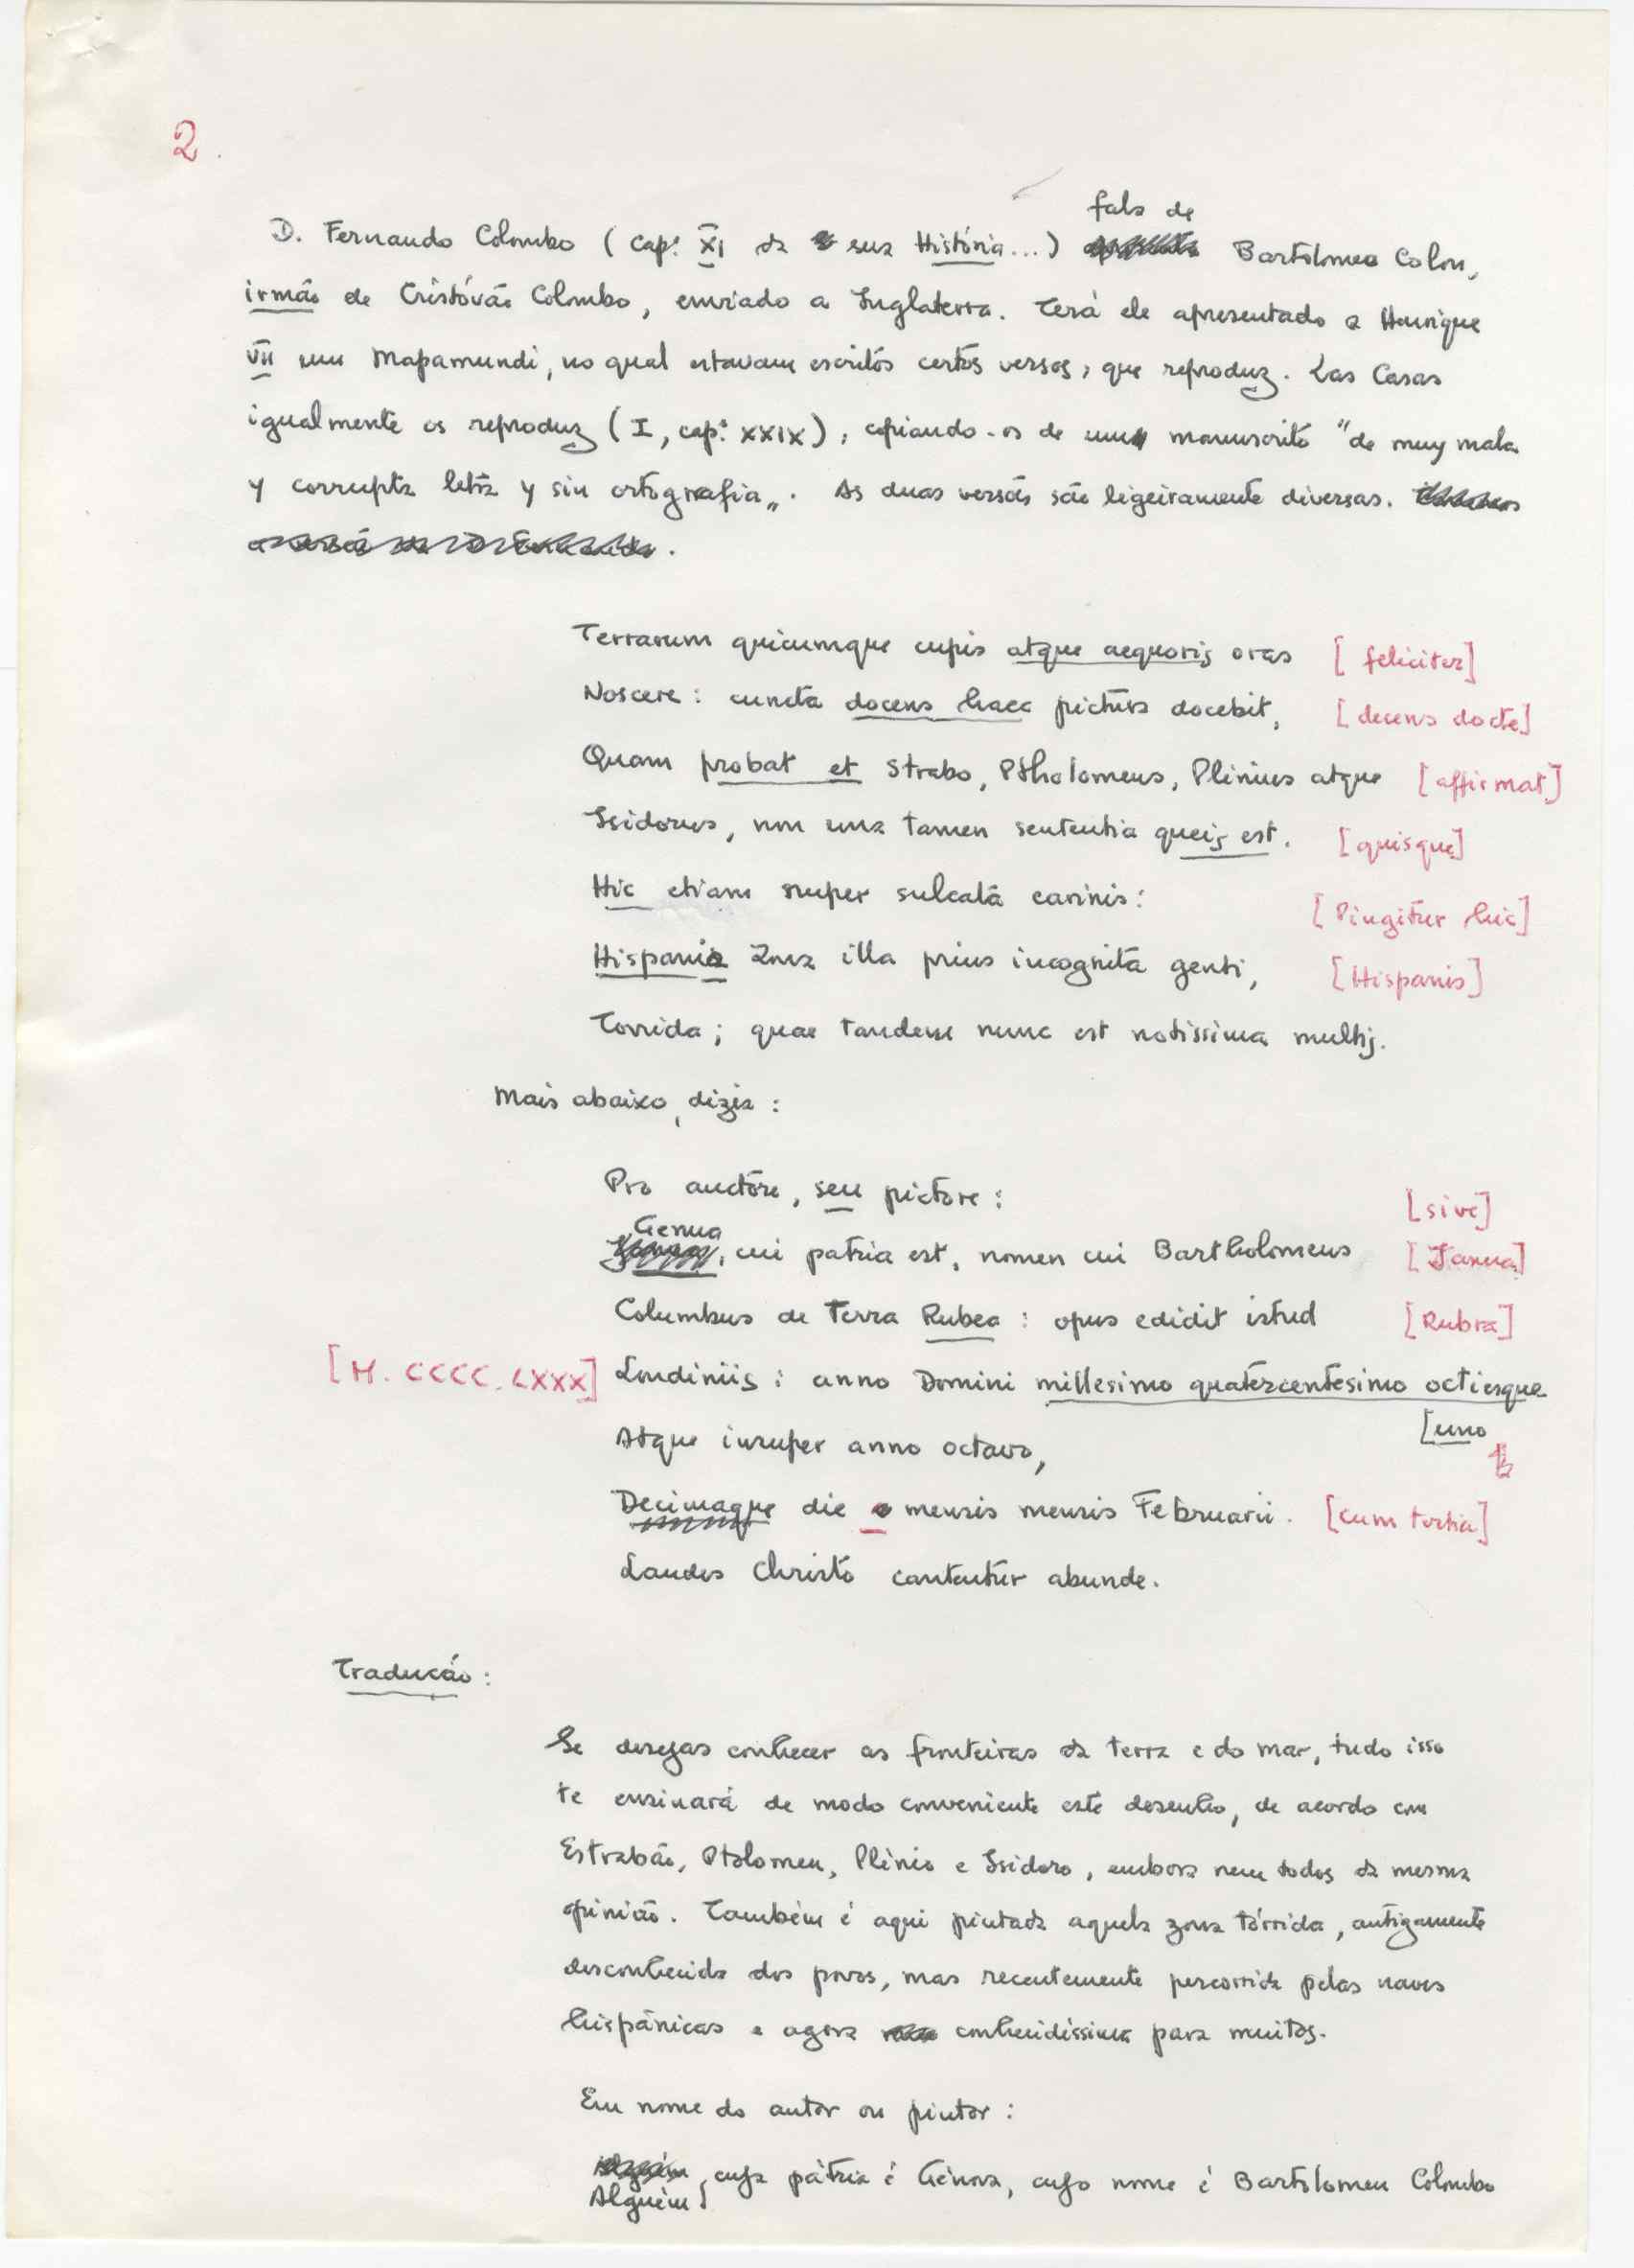 2.
fala de
D. Fernando Colombo (cap.º XI da sua História...) Bartolomeo Colon,
irmão de Cristóvão Colombo, enviado a Inglaterra. Terá ele apresentado a Henrique
VII um Mapamundi, no qual estavam escritos certos versos, que reproduz. Las Casas
igualmente os reproduz (I, cap.º XXIX), copiando-os de um manuscrito "de muy mala
y corrupta letra y sin ortografia". As duas versões são ligeiramente diversas.
Terrarum quicumque cupis atque aequoris oras [feliciter]
Noscere: cuncta docens haec pictura docebit, [decens docte]
Quam probat et Strabo, Ptholomeus, Plinius atque [affirmat]
Isidorus, non una tamen sententia queis est. [quisque]
Hic etiam nuper sulcata carinis: [Pingitur hic]
Hispania Zona illa prius incognita genti, [Hispanis]
Torrida; quae tandem nunc est notissima multis.
Mais abaixo, dizia:
Pro auctore, seu pictore: [sive]
Genua, cui patria est, nomen cui Bartholomeus [Janua]
Columbus de Terra Rubea: opus edidit istud [Rubra]
[M. CCCC. LXXX] Londiniis: anno Domini millesimo quatercentesimo octiesque
[uno
Atque insuper anno octavo,
Decimaque die mensis mensis Februarii. [cum tertia]
Laudes Christo cantentur abunde.
Tradução:
Se desejas conhecer as fronteiras da terra e do mar, tudo isso
te ensinará de modo conveniente este desenho, de acordo com
Estrabão, Ptolomeu, Plínio e Isidoro, embora nem todos da mesma
opinião. Também é aqui pintada aquela zona tórrida, antigamente
desconhecida dos povos, mas recentemente percorrida pelas naves
hispânicas e agora conhecidíssima para muitos.
Em nome do autor ou pintor:
Alguém, cuja pátria é Génova, cujo nome é Bartolomeu Colombo